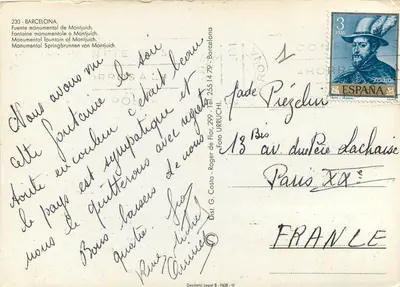 230 - BARCELONA.
Fuente monumental de Montjuich.
Fontaine monumentale de Montjuich.
Monumental fountain of Montjuich.
Monumental Springbrunnen von Montjuich.
Nous avons vu
cette fontaine le soir
toute en couleur c'était beau
le pays est sympathique et
nous le quitterons avec regret
Bons baisers de nous
quatre.
Dist. G. Costa - Roger de Flor, 299 - Tel. 255 14 79 - Barcelona
Foto URRUCHI.
Depósito Legal B
1
3
PTAS
ESPAÑA
CORREOS
Piézelin
13 Bis av. du Père Lachaise
Paris XX
FRANCE